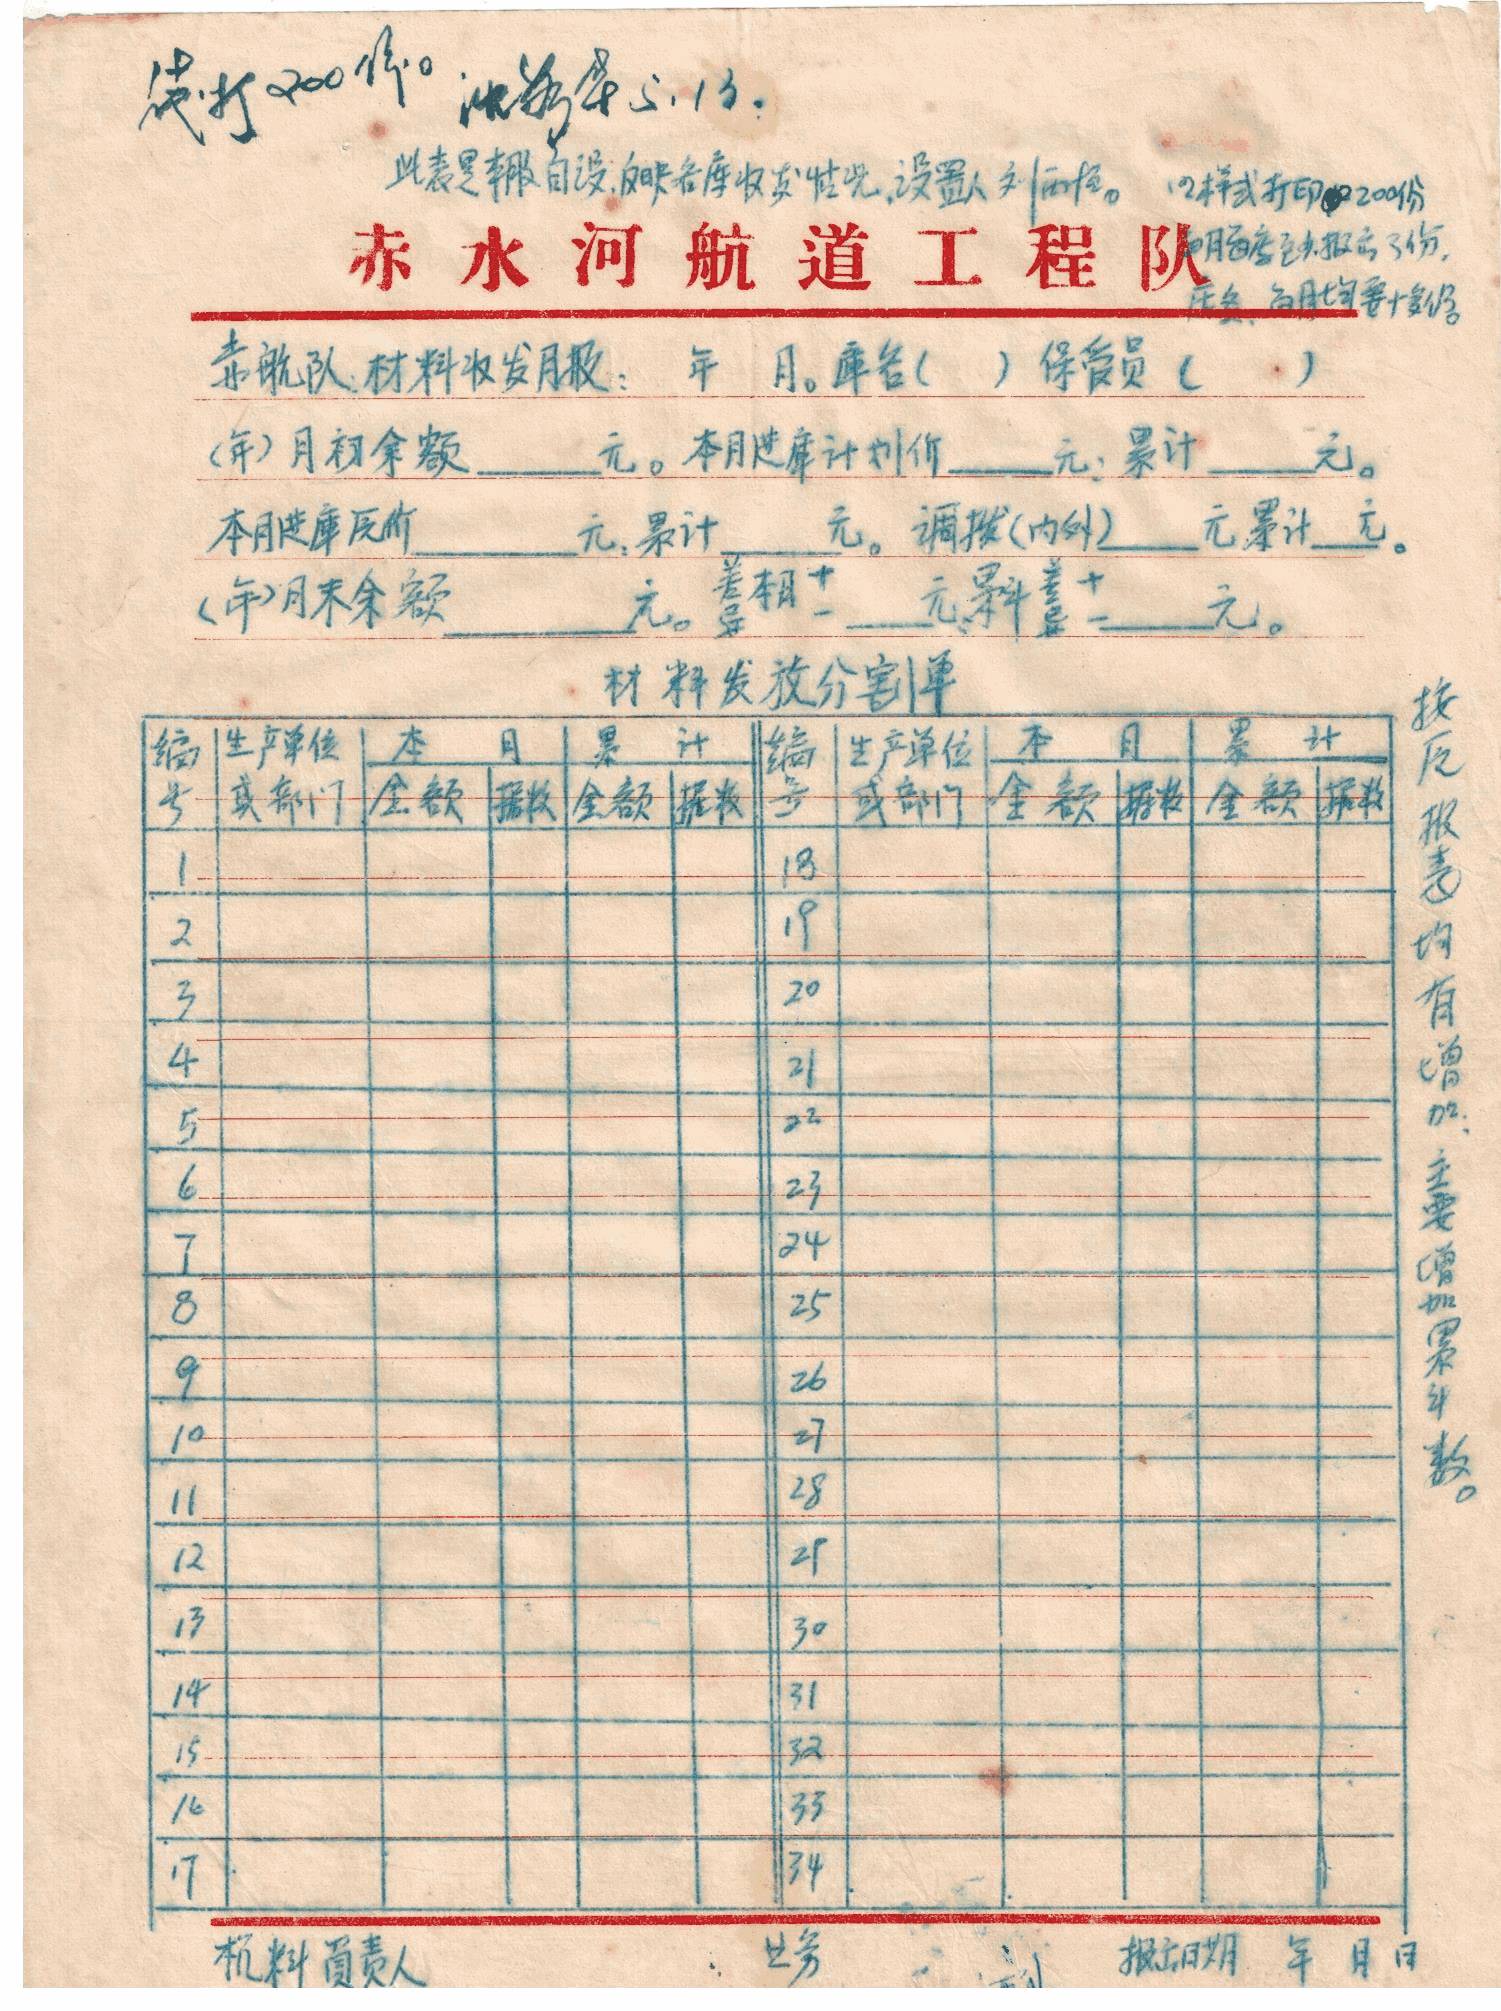 打200份。 5.13.
此表是 自设,反映各库收发情况,设置人刘
样式打印200份
月每库 报 3份,
每月均要十多份。
赤水河航道工程队
赤航队:材料收发月报: 年 月。库名( ) 保管员( )
(年)月初余额 元。本月进库计划价 元;累计 元。
本月进库反价 元;累计 元。调拨(内外) 元累计 元。
(年)月末余额 元。差异本月+- 元;累计差异+- 元。
材料发放分割单
编号 生产单位或部门 本月 累计 编号 生产单位或部门 本月 累计
金额 据数 金额 据数 金额 据数 金额 据数
1 18
2 19
3 20
4 21
5 22
6 23
7 24
8 25
9 26
10 27
11 28
12 29
13 30
14 31
15 32
16 33
17 34
按反报表均有增加,主要增加累计数。
机料負责人 业务 报出日期 年 月 日